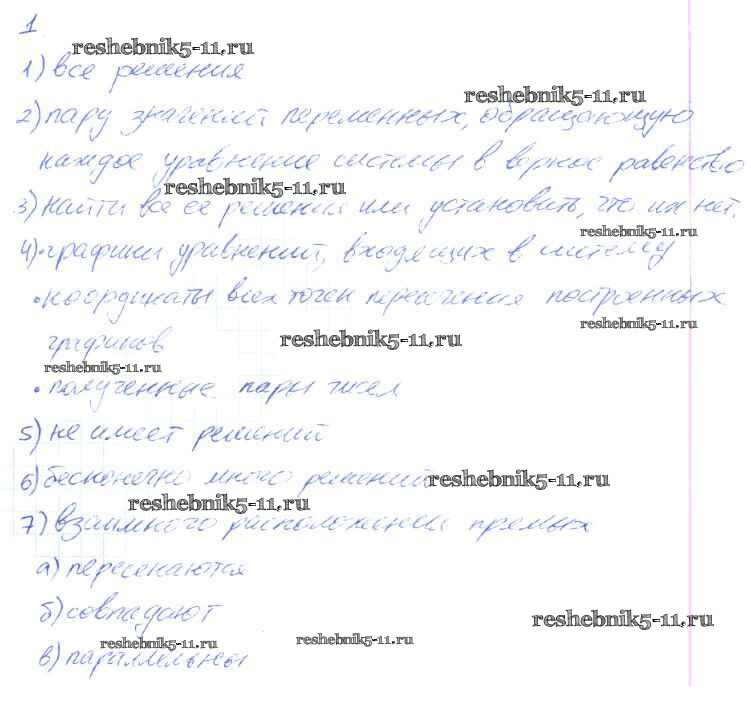 1
reshebnik5-11.ru
1) все решения
reshebnik5-11.ru
2) пару значений переменных, обращающую
каждое уравнение системы в верное равенство
reshebnik5-11.ru
3) найти все её решения или установить, что их нет.
reshebnik5-11.ru
4) • графики уравнений, входящих в систему
• координаты всех точек пересечения построенных
reshebnik5-11.ru
графиков
reshebnik5-11.ru
reshebnik5-11.ru
• полученные пары чисел
5) не имеет решений
6) бесконечно много решений
reshebnik5-11.ru
reshebnik5-11.ru
7) взаимного расположения прямых
а) пересекаются
б) совпадают
reshebnik5-11.ru
reshebnik5-11.ru
reshebnik5-11.ru
в) параллельны